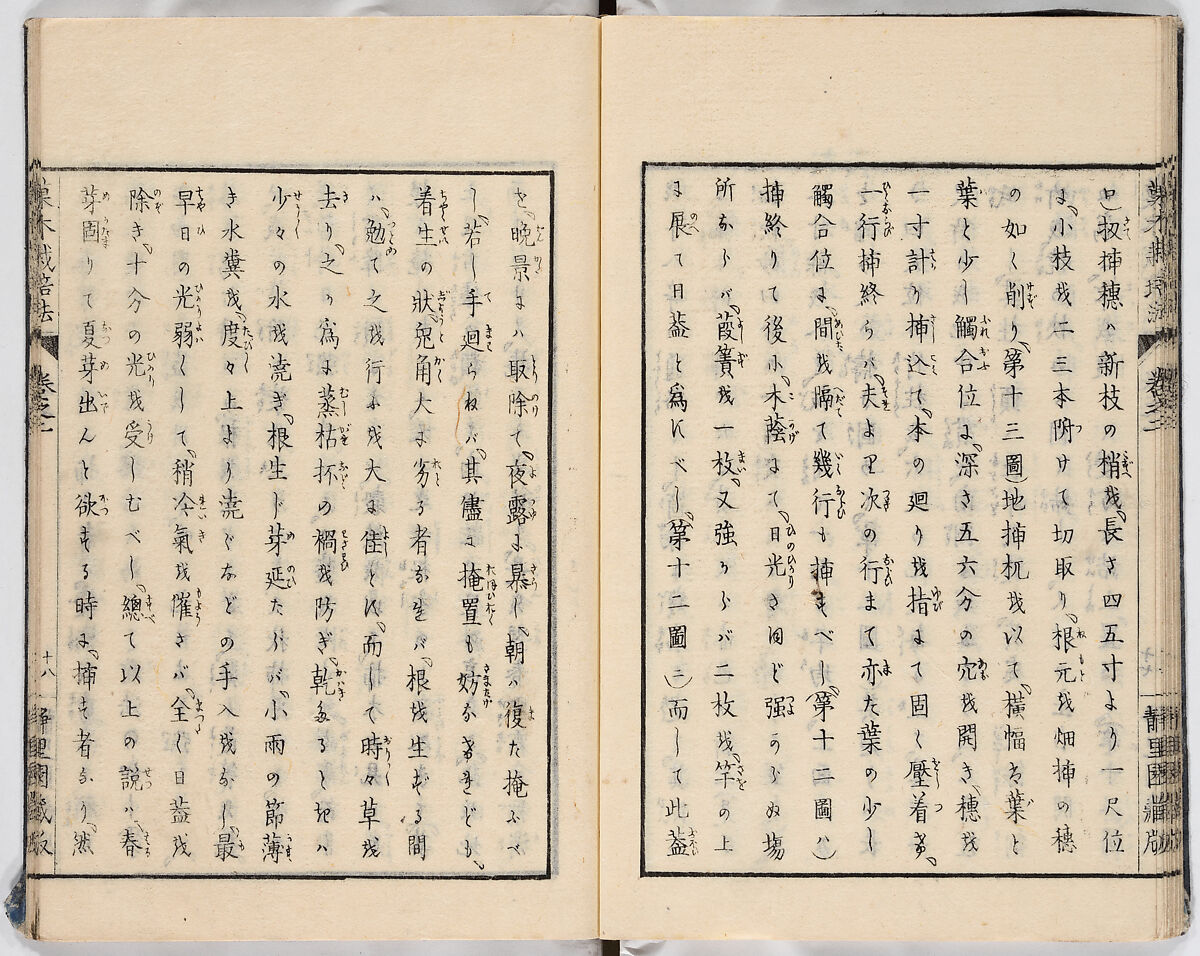 ロ)扨挿穗ハ新枝の梢を、長さ四五寸より一尺位
に、小枝を二三本附けて切取り、根元を畑挿の穗
の如く削り、(第十三圖)地挿杌を以て、橫幅は葉と
葉と少し觸合位に、深さ五六分の穴を開き、穗を
一寸計り挿込て、本の廻りを指にて固く壓着け、
一行挿終らバ、夫より次の行まで亦た葉の少し
觸合位に、間を隔て幾行も挿すべし、(第十二圖ハ)
挿終りて後ハ、木蔭にて、日光さ程ど强からぬ塲
所ならバ、葭簀を一枚、又強からバ二枚を、竿の上
に展て日葢と爲すべし、(第十二圖ニ)而して此葢
を、晩景にハ取除て、夜露に暴し、朝ハ復た掩ふべ
し、若し手廻らねバ、其儘に掩置も妨なけれども、
着生の狀、兎角大に劣る者なれバ、根を生ずる間
ハ、勉て之を行ふを大に佳とす、而して時々草を
去り、之が爲に蒸枯抔の禍を防ぎ、乾きたるときハ
少々の水を澆ぎ、根生じ芽延たらバ、小雨の節薄
き水糞を、度々上より澆ぐなどの手入をなし、最
早日の光弱くして、稍冷氣を催さバ、全く日葢を
除き、十分の光を受しむべし、總て以上の說ハ、春
芽固りて夏芽出んと欲する時に、挿す者なり、然
菓木栽培法
卷之二
十八
靜里園藏版
靜里園藏版